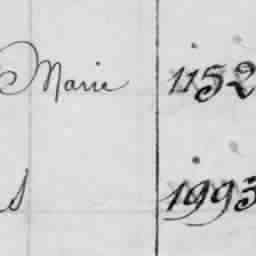 Marie 1152
s 1993